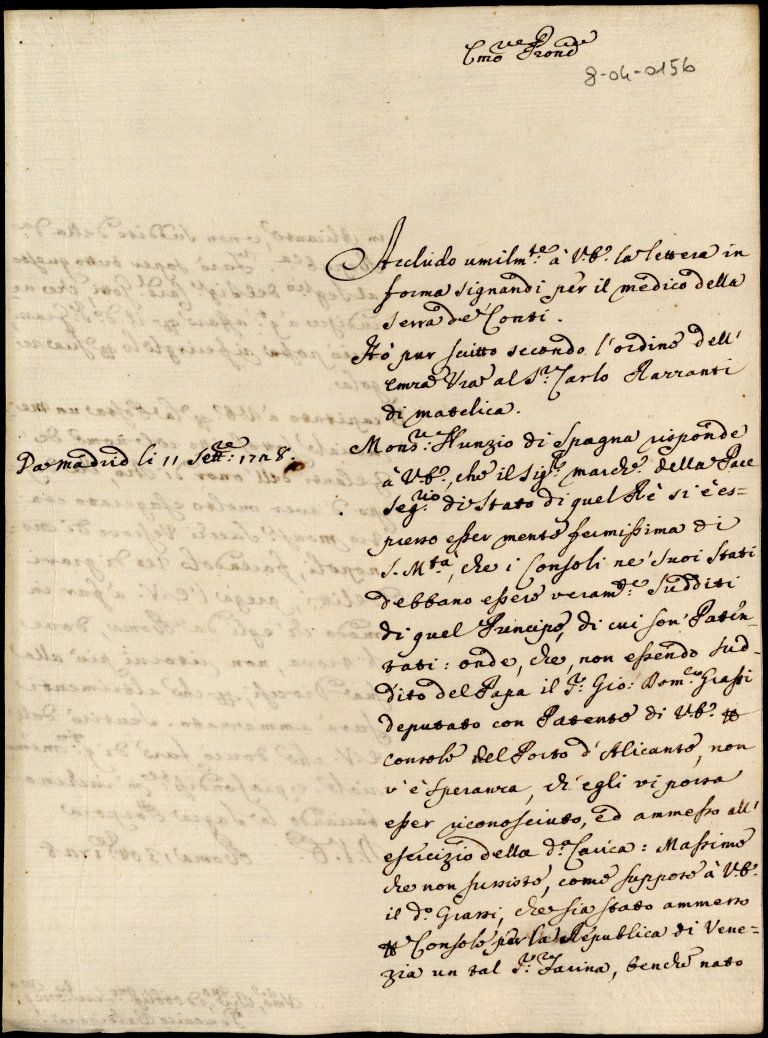 Emo ue Prone
8-04-0156
Accludo umilmte à V.E. la lettera in
forma signandi per il medico della
Serra de Conti.
Hò pur scritto secondo l'ordine dell'
Emza Vra al Sr. Carlo Razzanti
di matelica.
Monsre. Nunzio di Spagna risponde
Da Madrid li 11 Settre: 1728.
à V.E., che il Sigre. march. della Pace
Segrio. di Stato di quel Rè si è es=
presso esser mente fermissima di
S. Mtà, che i Consoli ne' suoi Stati
debbano essere veramte. Sudditi
di quel Principe, di cui son' Paten=
tati: onde, che, non essendo sud=
dito del Papa il Sr. Gio: Domco. Grassi
deputato con Patente di V.E. per
console del Porto d'Alicante, non
v'è speranza, ch'egli vi possa
esser riconosciuto, ed ammesso all'
esercizio della da. Carica: Massime
che non sussiste, come suppose à V.E.
il do. Grassi, che sia stato ammesso
per Console per la Republica di Vene=
zia un tal Sr. Farina, benche nato